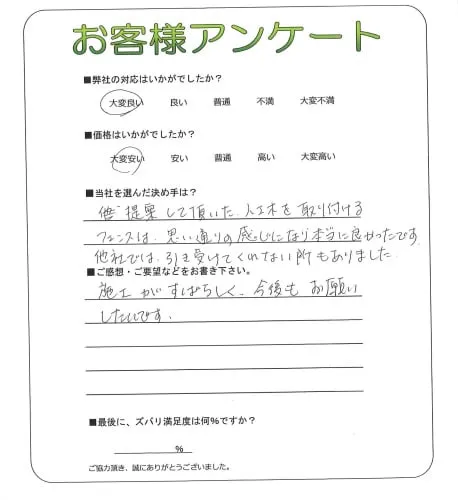 お客様アンケート
■弊社の対応はいかがでしたか?
大変良い 良い 普通 不満 大変不満
■価格はいかがでしたか?
大変安い 安い 普通 高い 大変高い
■当社を選んだ決め手は?
提案して頂いた、人工木を取り付ける
フェンスは、思い通りの感じになり本当に良かったです
他社では、引き受けてくれない所もありました。
■ご感想・ご要望などをお書き下さい。
施工がすばらしく、今後もお願い
したいです。
■最後に、ズバリ満足度は何%ですか?
%
ご協力頂き、誠にありがとうございました。